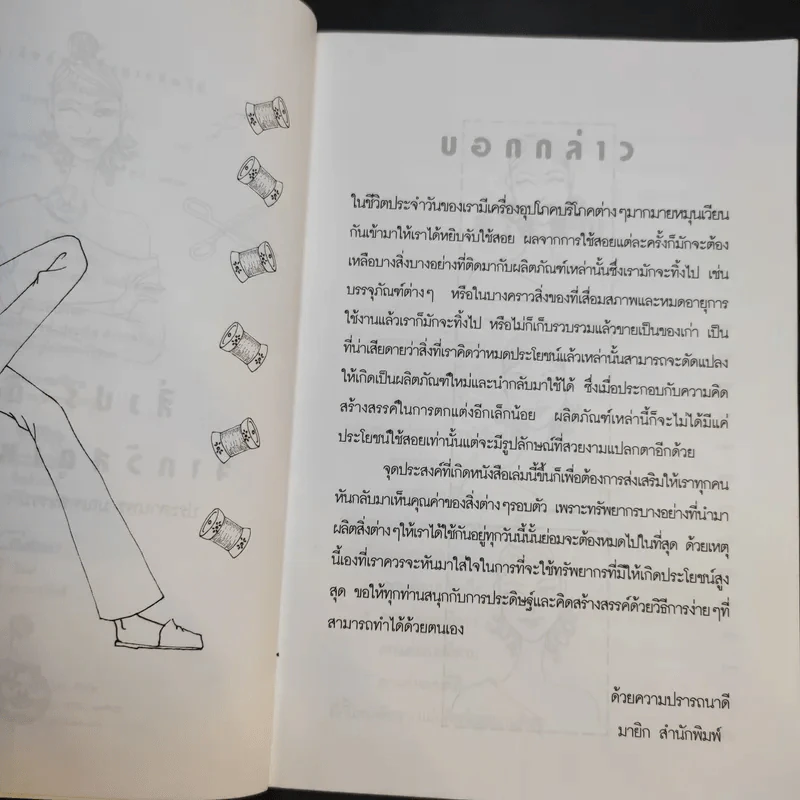 บอกกล่าว
ในชีวิตประจำวันของเรามีเครื่องอุปโภคบริโภคต่างๆมากมายหมุนเวียน
กันเข้ามาให้เราได้หยิบจับใช้สอย ผลจากการใช้สอยแต่ละครั้งก็มักจะต้อง
เหลือบางสิ่งบางอย่างที่ติดมากับผลิตภัณฑ์เหล่านั้นซึ่งเรามักจะทิ้งไป เช่น
บรรจุภัณฑ์ต่างๆ หรือในบางคราวสิ่งของที่เสื่อมสภาพและหมดอายุการ
ใช้งานแล้วเราก็มักจะทิ้งไป หรือไม่ก็เก็บรวบรวมแล้วขายเป็นของเก่า เป็น
ที่น่าเสียดายว่าสิ่งที่เราคิดว่าหมดประโยชน์แล้วเหล่านั้นสามารถจะดัดแปลง
ให้เกิดเป็นผลิตภัณฑ์ใหม่และนำกลับมาใช้ได้ ซึ่งเมื่อประกอบกับความคิด
สร้างสรรค์ในการตกแต่งอีกเล็กน้อย ผลิตภัณฑ์เหล่านี้ก็จะไม่ได้มีแค่
ประโยชน์ใช้สอยเท่านั้นแต่จะมีรูปลักษณ์ที่สวยงามแปลกตาอีกด้วย
จุดประสงค์ที่เกิดหนังสือเล่มนี้ขึ้นก็เพื่อต้องการส่งเสริมให้เราทุกคน
หันกลับมาเห็นคุณค่าของสิ่งต่างๆรอบตัว เพราะทรัพยากรบางอย่างที่นำมา
ผลิตสิ่งต่างๆให้เราได้ใช้กันอยู่ทุกวันนี้นั้นย่อมจะต้องหมดไปในที่สุด ด้วยเหตุ
นี้เองที่เราควรจะหันมาใส่ใจในการที่จะใช้ทรัพยากรที่มีให้เกิดประโยชน์สูง
สุด ขอให้ทุกท่านสนุกกับการประดิษฐ์และคิดสร้างสรรค์ด้วยวิธีการง่ายๆที่
สามารถทำได้ด้วยตนเอง
ด้วยความปรารถนาดี
มายิก สำนักพิมพ์